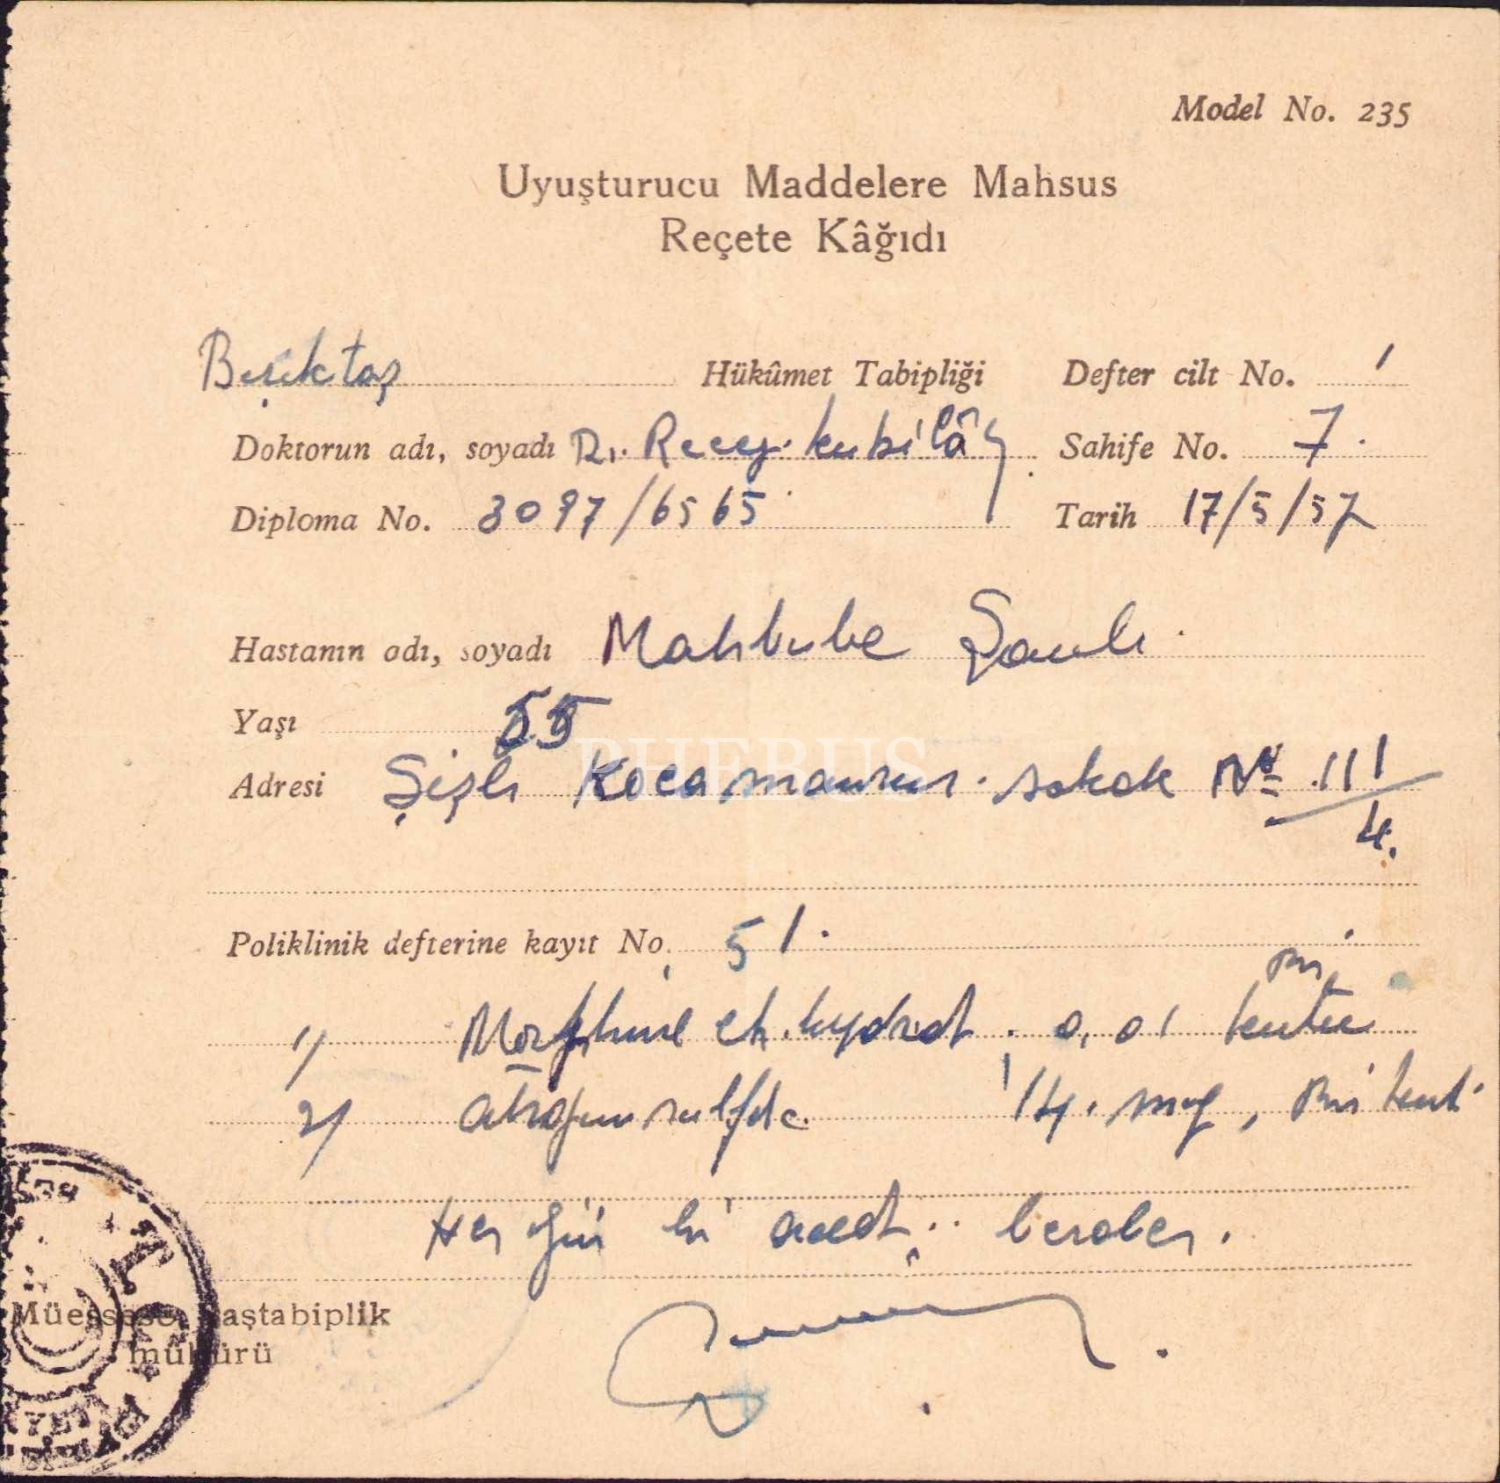 Model No. 235
Uyuşturucu Maddelere Mahsus
Reçete Kâğıdı
Beşiktaş Hükûmet Tabipliği Defter cilt No. 1
Doktorun adı, soyadı Dr. Recep Kubilây Sahife No. 7.
Diploma No. 3097/6565 Tarih 17/5/57
Hastanın adı, soyadı Mahbube Şanlı
Yaşı 55
PHEBUS
Adresi Şişli Kocamansur sokak No 111/4.
Poliklinik defterine kayıt No. 51.
1) Morphine ch. hydrat. 0,01 bir kutu
2) atropin sulfate 1/4 mg, bir kut
Her gün bir adet beraber.
Müessese Baştabiplik
mühürü
T.C.